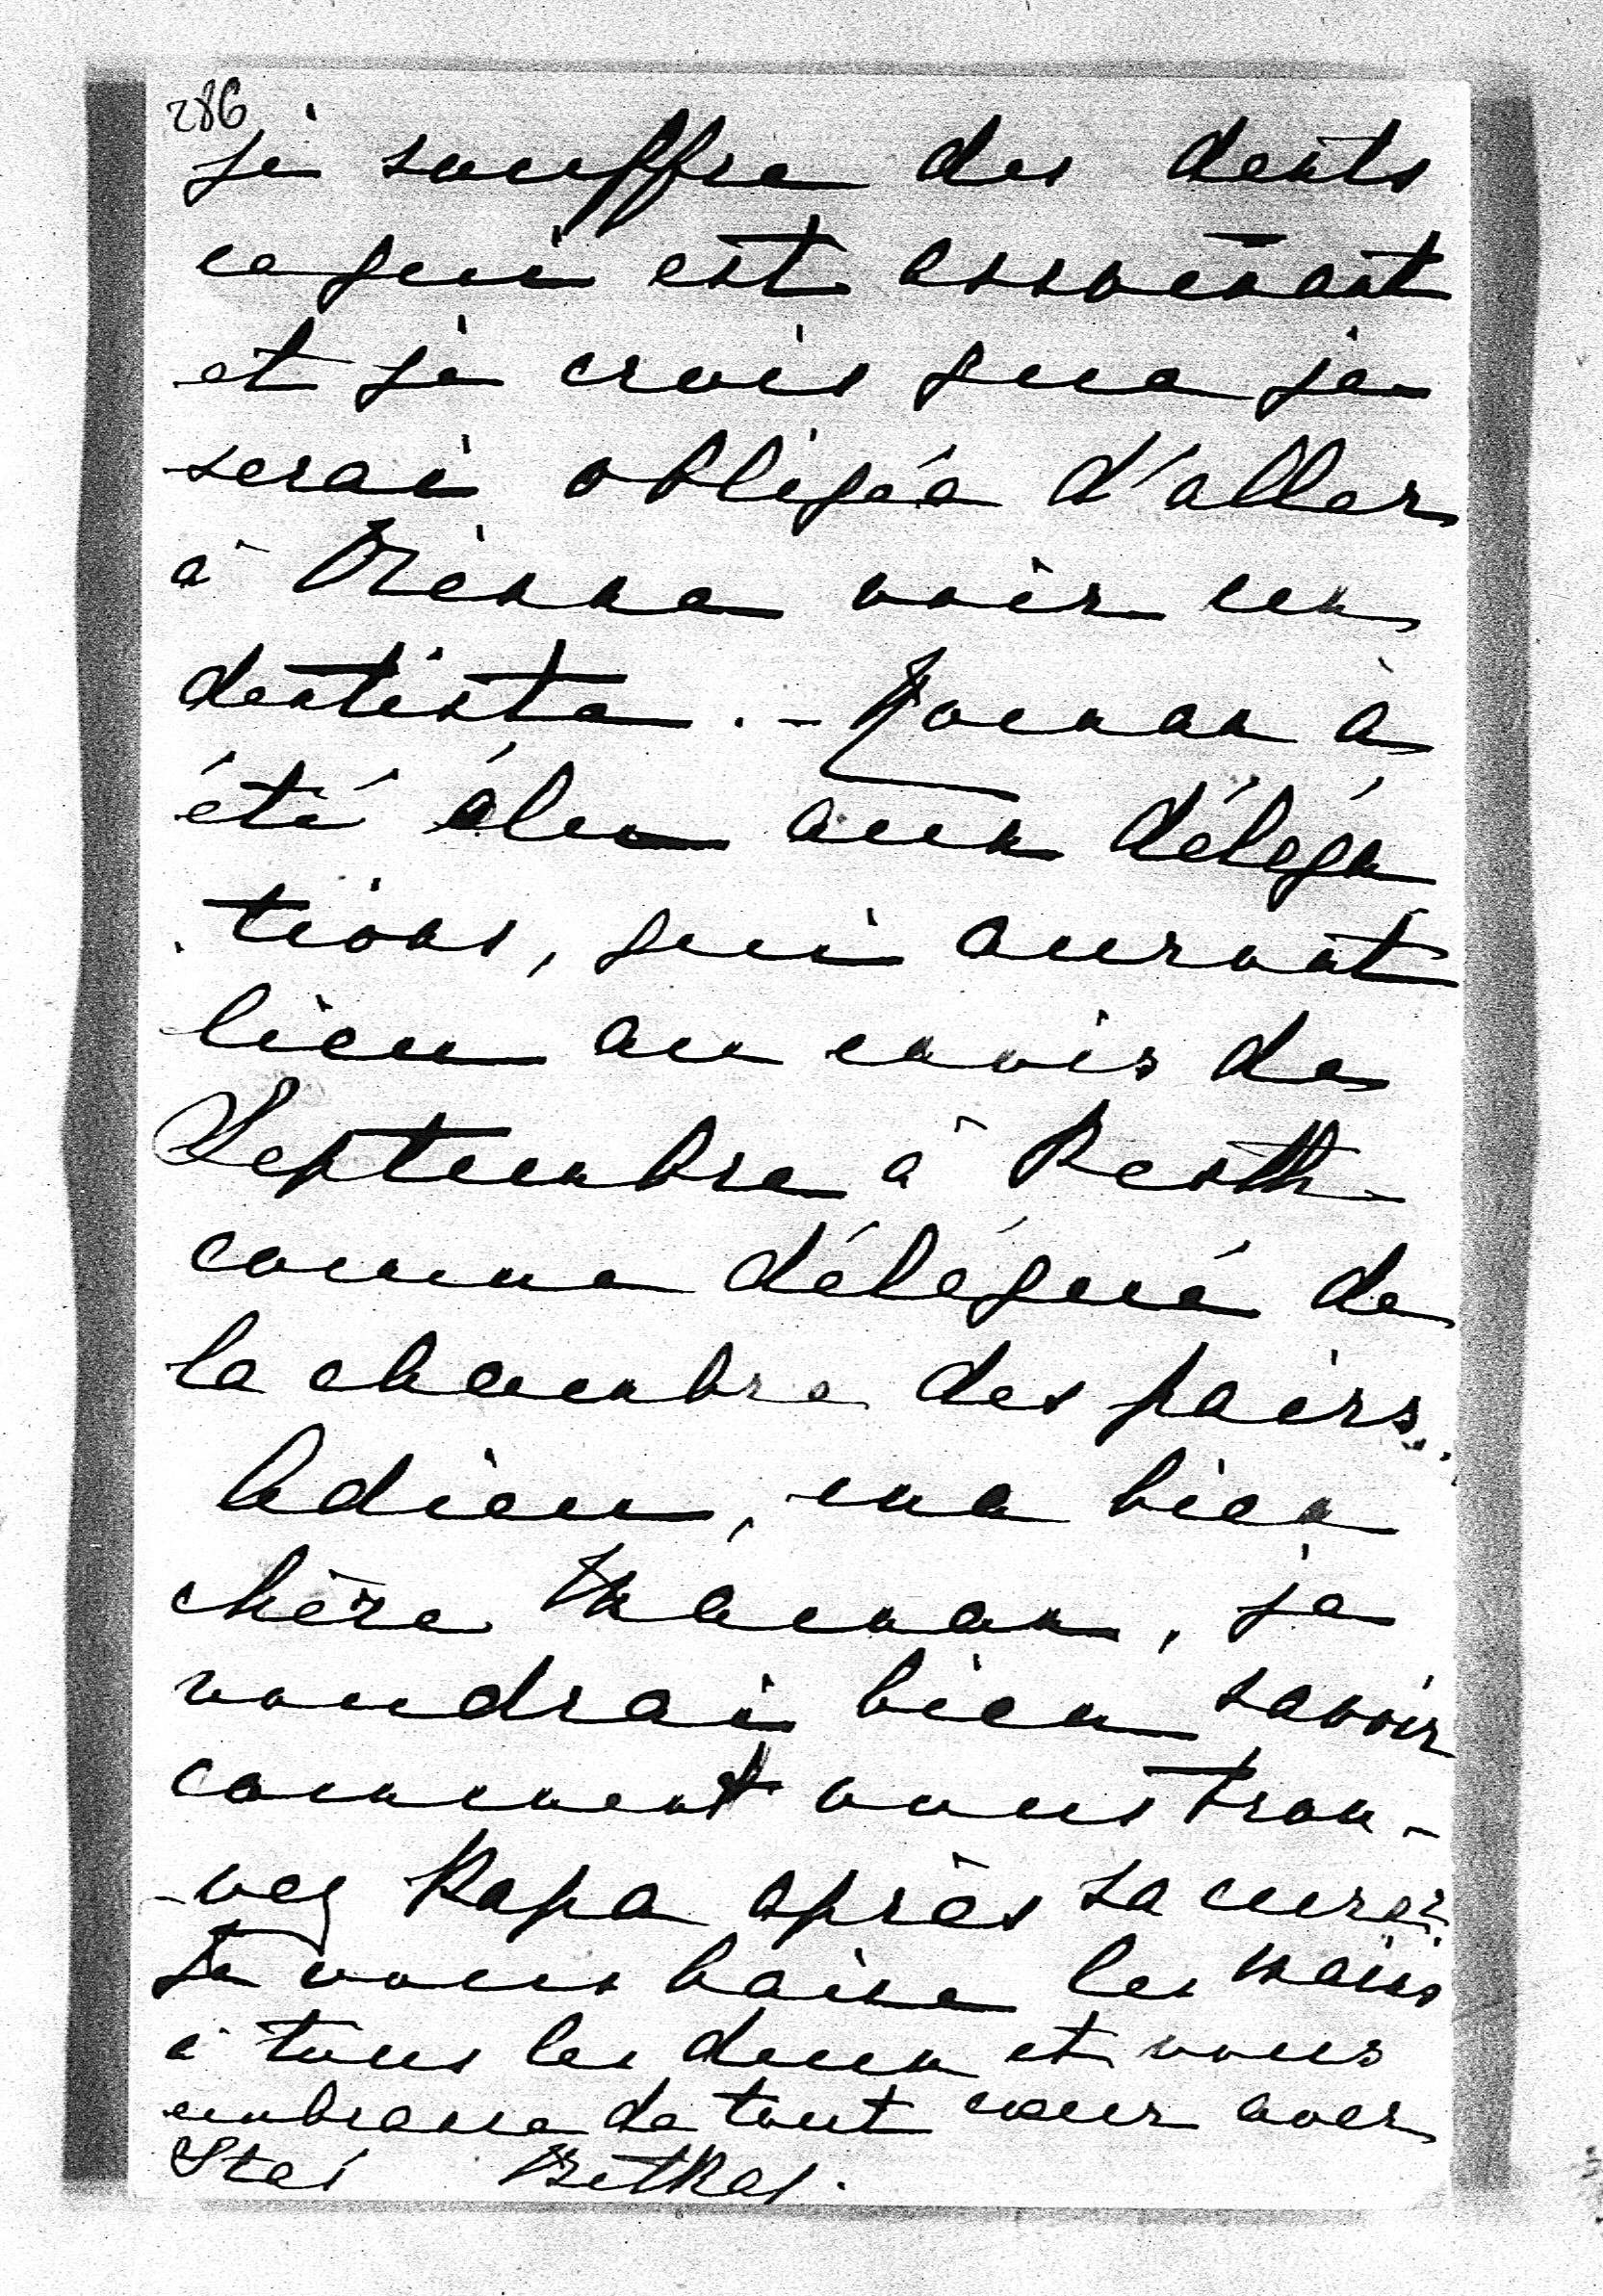 286
je souffre des dents
ce qui est assomant
et je crois que je
serai obligée d'aller
à Vienne voir un
dentiste. - Roman a
été élu aux déléga
tions, qui auront
lieu au mois de
Septembre à Pesth
comme délégué de
la chambre des pairs.
Adieu, ma bien
chère Maman, je
voudrai bien savoir
comment vous trou-
vez Papa après sa cure?
Je vous baise les mains
à tous les deux et vous
embrasse de tout cœur avec
Stas Betka.